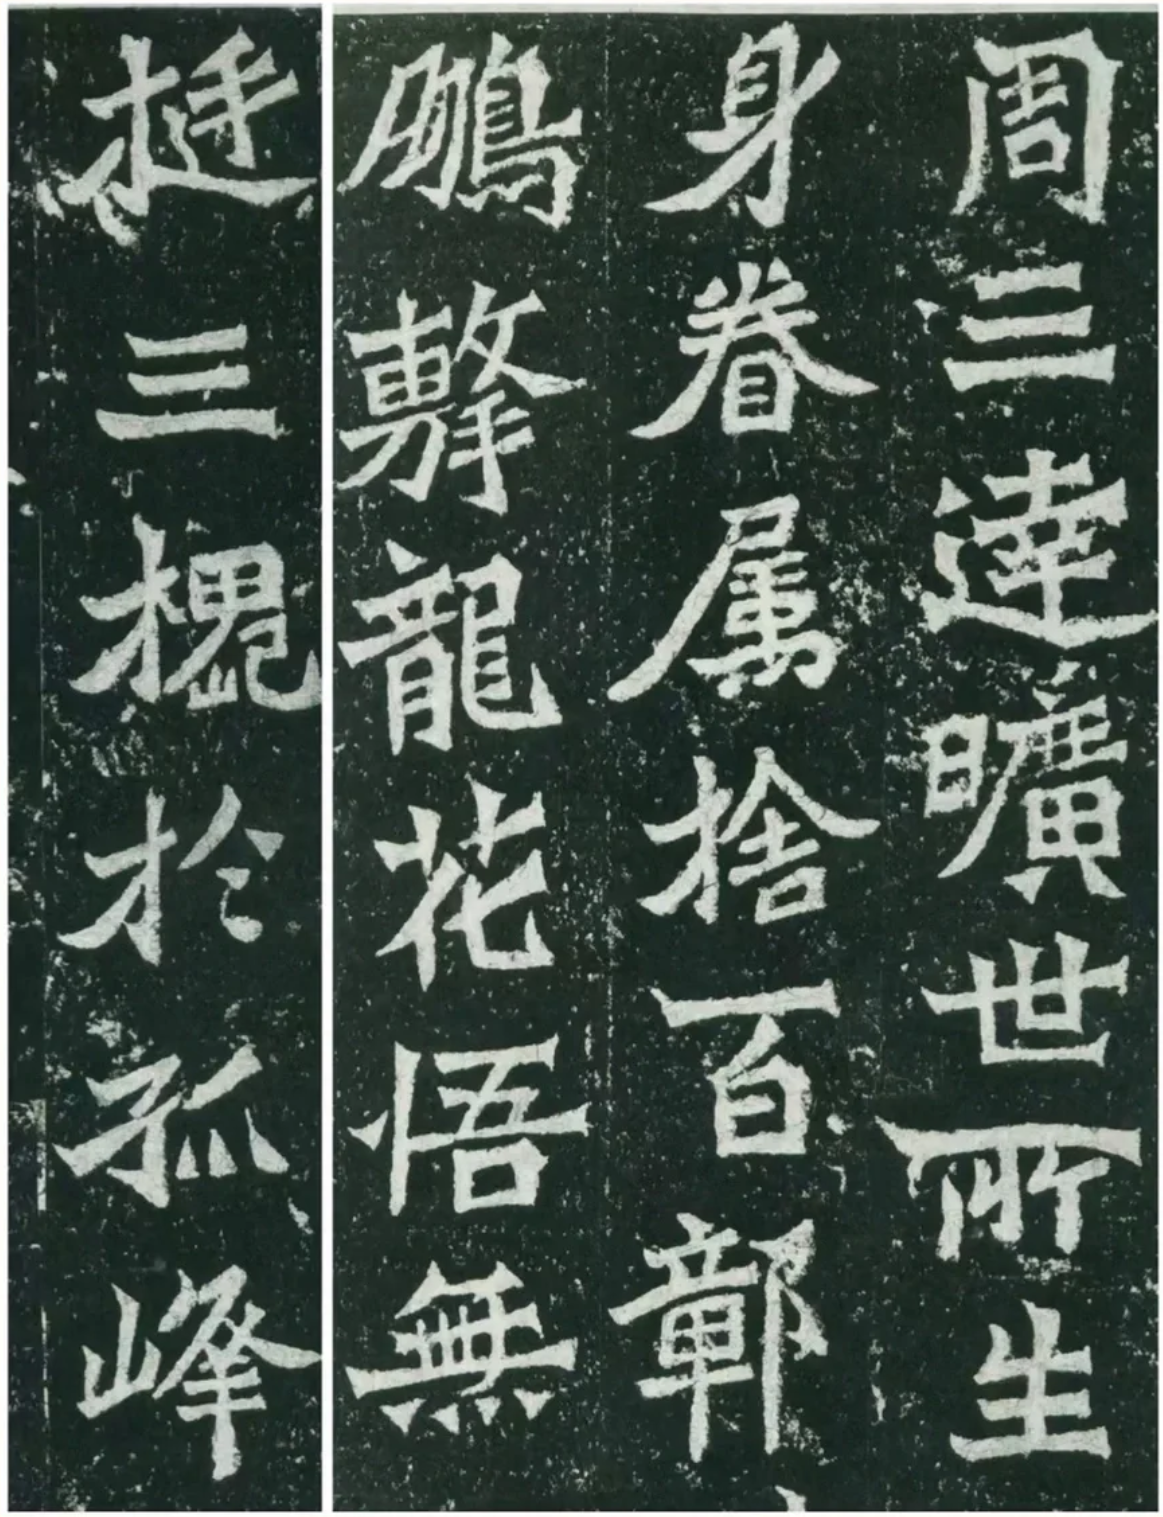 周三達曠世所生
身眷属捨百鄣
鵬擊龍花悟無
挺三槐於孤峰